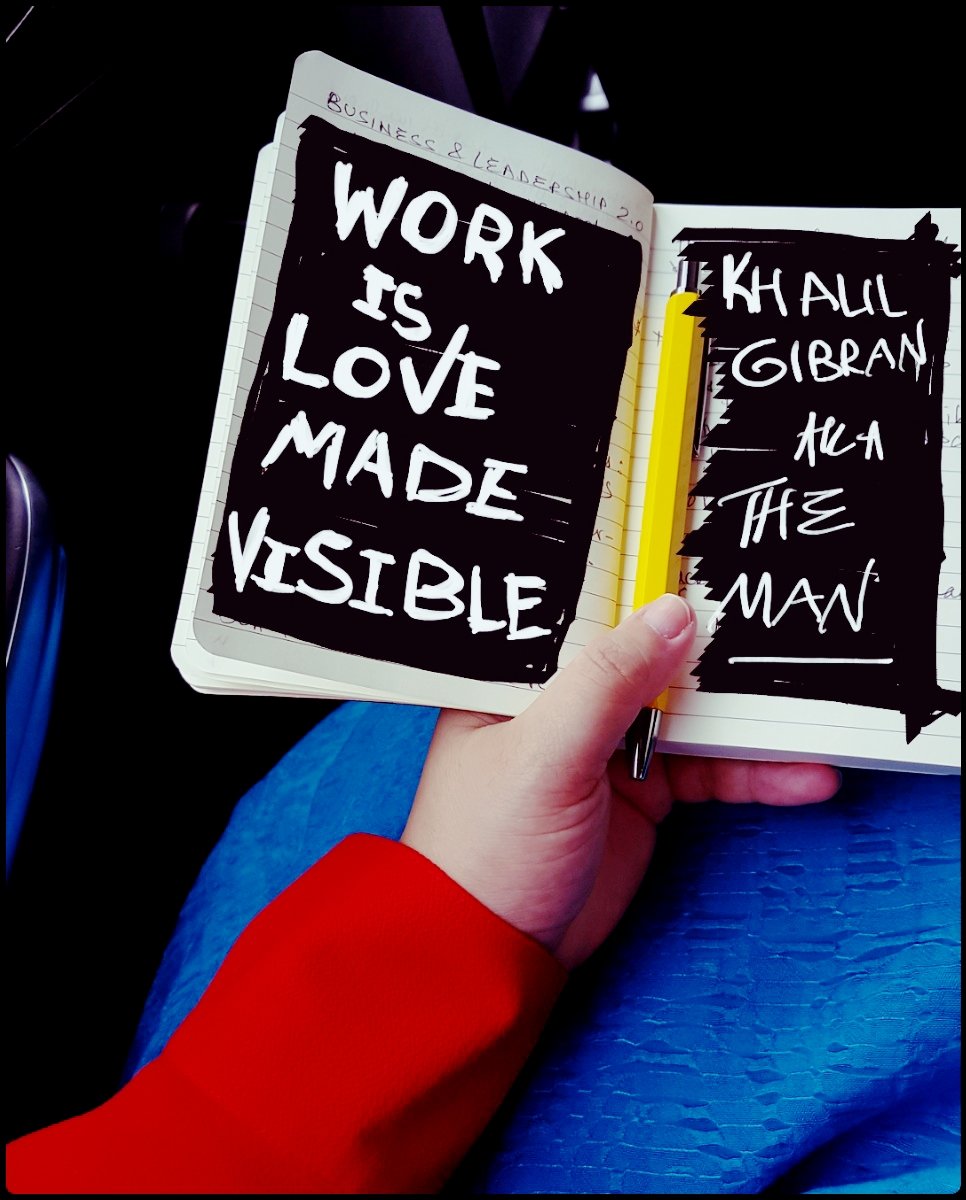 BUSINESS & LEADERSHIP 2.0
WORK
IS
LOVE
MADE
VISIBLE
KHALIL
GIBRAN
AKA
THE
MAN